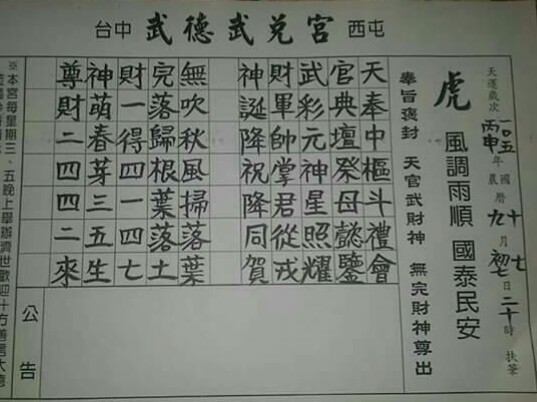 台中 武德武兌宮 西屯
天運歲次一〇五丙申年國農曆十九月七初七日二十時 扶筆
虎 風調雨順 國泰民安
奉旨褒封 天官武財神 無完財神尊出
天奉中樞斗禮會
官典壇祭母懿鑒
武彩元神星照耀
財軍帥掌君從戎
神誕降祝降同賀
無吹秋風掃落葉
完落歸根葉落土
財一得四一四七
神萌春芽三五生
尊財二四四二來
公告
※本宮每星期三、五晚上舉辦濟世歡迎十方善信大德